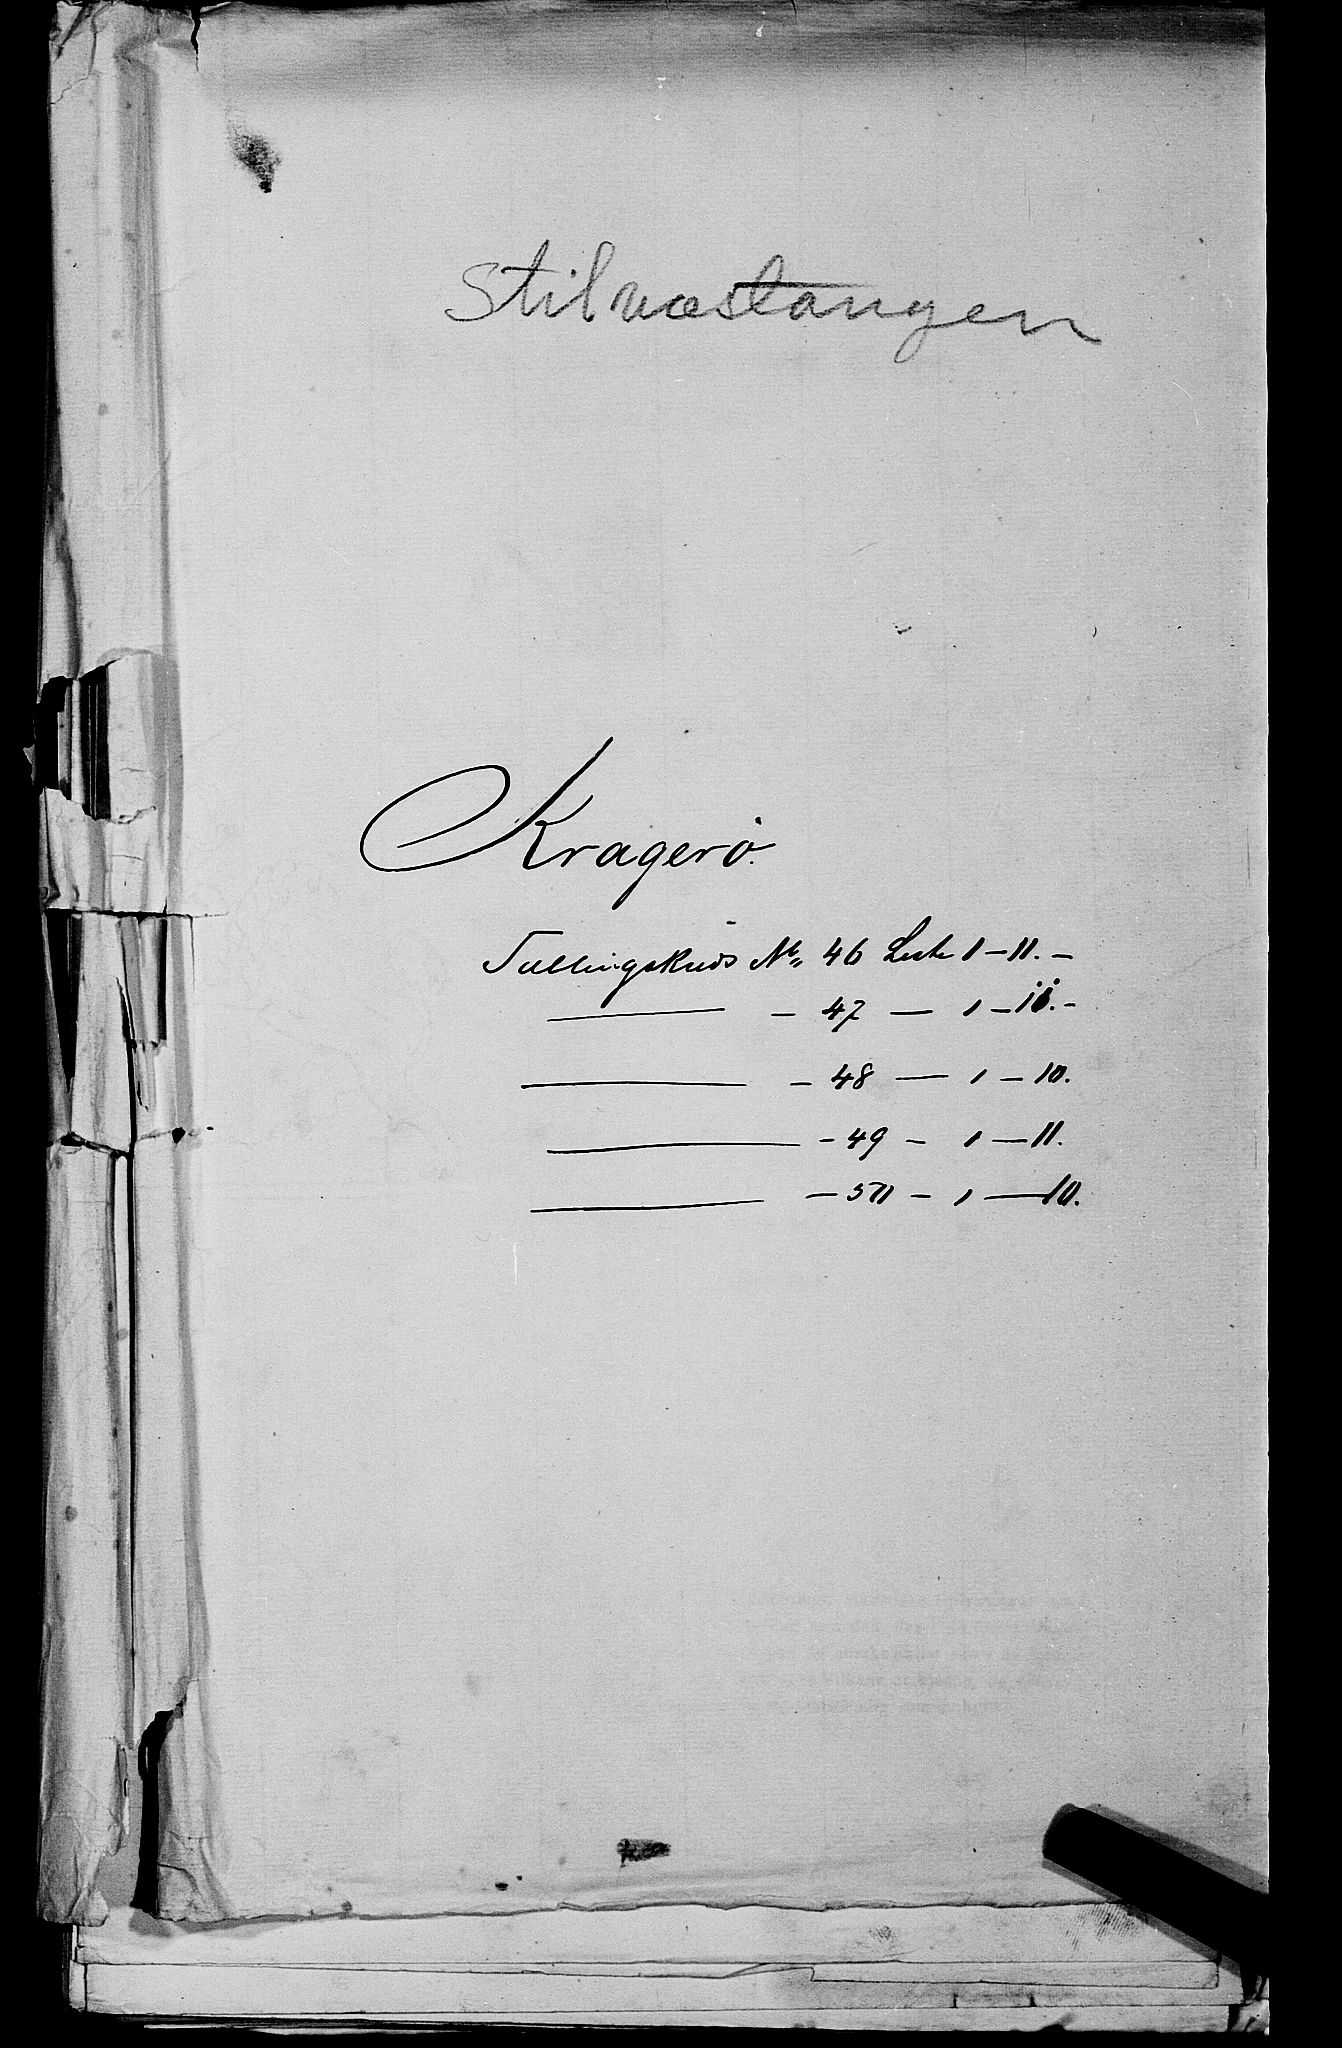 Stilnæstangen
Kragerö.
Tællingskreds No. 46 Liste 1 – 11. –
— – 47 — 1 – 11. –
— – 48 — 1 – 10.
— – 49 – 1 – 11.
— – 50 – 1 – 10.